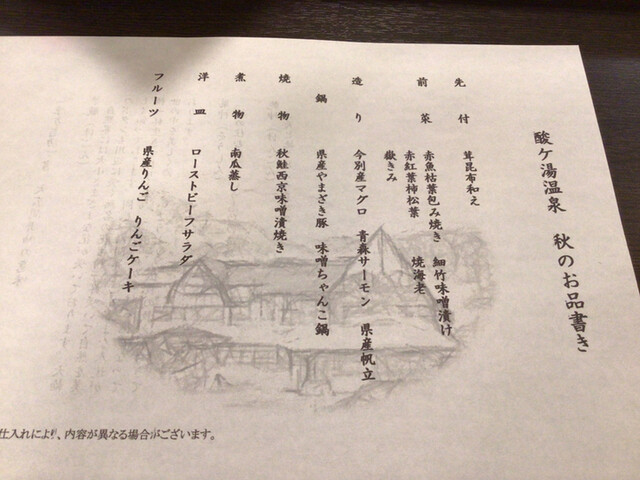 酸ケ湯温泉 秋のお品書き
先付 茸昆布和え
前菜 赤魚枯葉包み焼き 細竹味噌漬け
赤紅葉柿松葉 焼海老
嶽きみ
造り 今別産マグロ 青森サーモン 県産帆立
鍋 県産やまざき豚 味噌ちゃんこ鍋
焼物 秋鮭西京味噌漬焼き
煮物 南瓜蒸し
洋皿 ローストビーフサラダ
フルーツ 県産りんご りんごケーキ
仕入れにより、内容が異なる場合がございます。